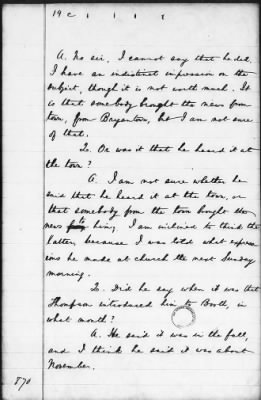 19 c 1 1 1 2
A. No sir, I cannot say that he did.
I have an indistinct impression on the
subject, though it is not worth much. It
is that somebody brought the news from
town, from Bryantown, but I am not sure
of that.
Q. Or was it that he heard it at
the town?
A. I am not sure whether he
said that he heard it at the town, or
that somebody from the town bought the
news to him, I am inclined to think the
latter, because I was told what express-
ions he made at church the next Sunday
morning.
Q. Did he say when it was that
Thompson introduced him to Booth, in
what month?
A. He said it was in the fall,
and I think he said it was about
November.
870